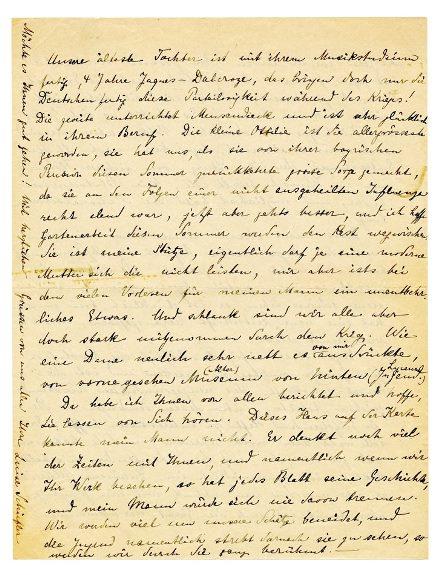 Unsere älteste Tochter ist mit ihrem Musikstudium
fertig, 4 Jahre Jaques-Dalcroze, das bringen doch nur die
Deutschen fertig diese Parteilosigkeit während des Kriegs!
Die zweite unterrichtet Mensendieck und ist sehr glücklich
in ihrem Beruf. Die kleine Ottilie ist die allergrösseste
geworden, sie hat uns, als sie von ihrer bayrischen
Pension diesen Sommer zurückkehrte grosse Sorge gemacht,
da sie an den Folgen einer nicht ausgeheilten Influenza
recht elend war, jetzt aber gehts besser, und ich hoffe
Gartenarbeit diesen Sommer werden den Rest wegwischen.
Sie ist meine Stütze, eigentlich darf je eine moderne
Mutter sich die nicht leisten, mir aber ists bei
den vielen Vorlesen für meinen Mann ein unentbehr-
liches Etwas. Und schlank sind wir alle aber
doch stark mitgenommen durch den Krieg. Wie
eine Dame neulich sehr nett es von mir ausdrückte,
von vorne gesehen Museum (Alter) von hinten Lyceum (Jugend).
Da habe ich Ihnen von allen berichtet und hoffe,
Sie lassen von Sich hören. Dieses Haus auf der Karte
kannte mein Mann nicht. Er denkt noch viel
der Zeiten mit Ihnen, und namentlich wenn wir
Ihr Werk besehen, so hat jedes Blatt seine Geschichte,
und mein Mann würde sich nie davon trennen.
Wir werden viel um unsere Schätze beneidet, und
die Jugend namentlich strebt darnach sie zu sehen, so
werden wir durch Sie ganz berühmt.
Möchte es Ihnen gut gehen! Viel herzliche Grüsse von uns allen Ihre Luise Schiefler